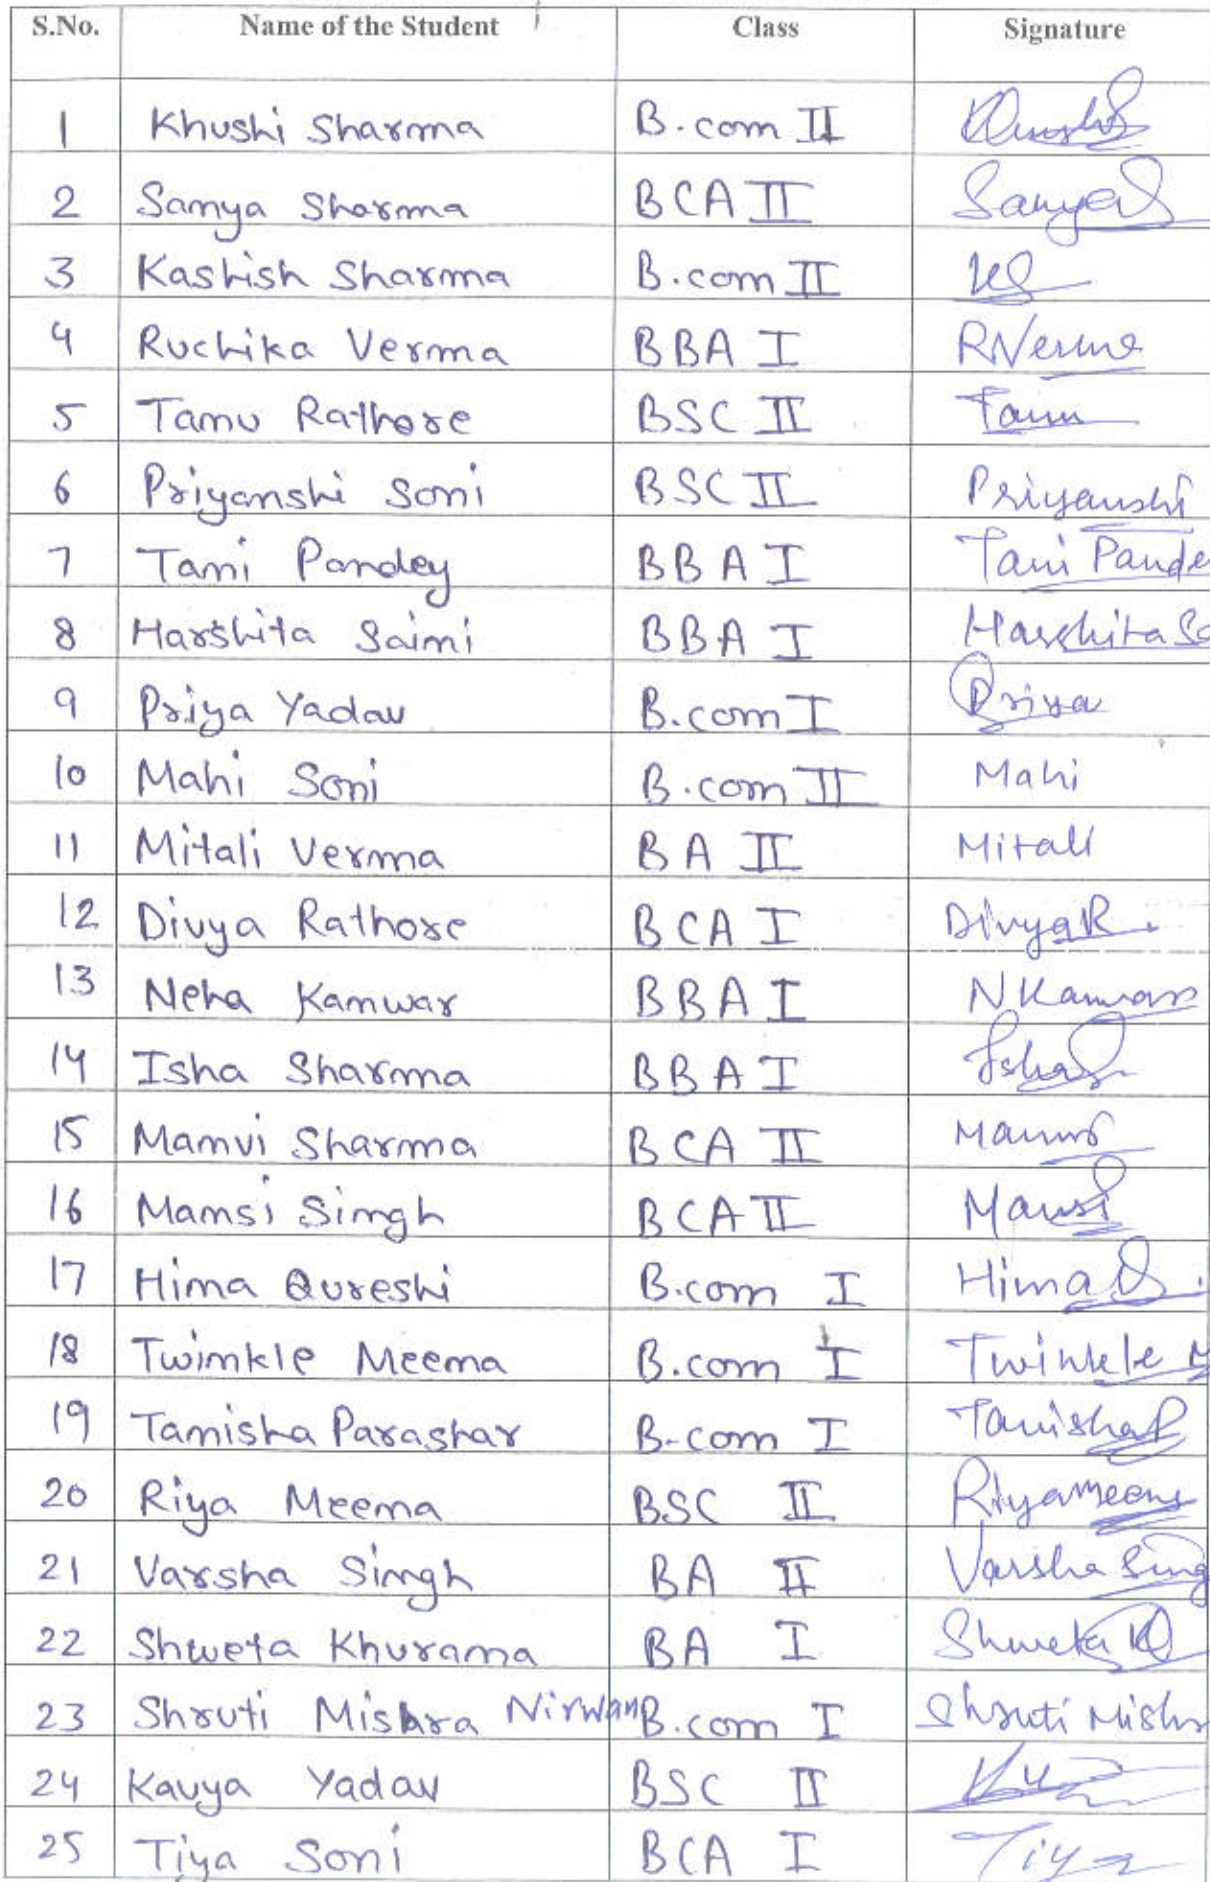 S.No. Name of the Student Class Signature
1 Khushi Sharma B.com II Khushi S
2 Samya Sharma BCA II Sanya S
3 Kashish Sharma B.com II KS
4 Ruchika Verma BBA I RVerma
5 Tamu Rathore BSC II Tanu
6 Priyanshi Soni BSC II Priyanshi
7 Tami Pandey BBA I Tani Pande
8 Harshita Saimi BBA I Harshita Sa
9 Priya Yadav B.com I Priya
10 Mahi Soni B.com II Mahi
11 Mitali Verma BA II Mitali
12 Divya Rathore BCA I Divya R.
13 Neha Kamwar BBA I N Kanwar
14 Isha Sharma BBA I Isha S
15 Mamvi Sharma BCA II
16 Mamsi Simgh BCA II Mansi
17 Hima Qureshi B.com I Hima Q.
18 Twimkle Meema B.com I Twinkle M
19 Tamisha Parashar B-com I Tanisha P
20 Riya Meema BSC II Riya Meena
21 Varsha Simgh BA II Varsha Sing
22 Shweta Khurama BA I Shweta K
23 Shruti Mishra Nirwan B.com I Shruti Mishr
24 Kavya Yadav BSC II
25 Tiya Soni BCA I Tiya